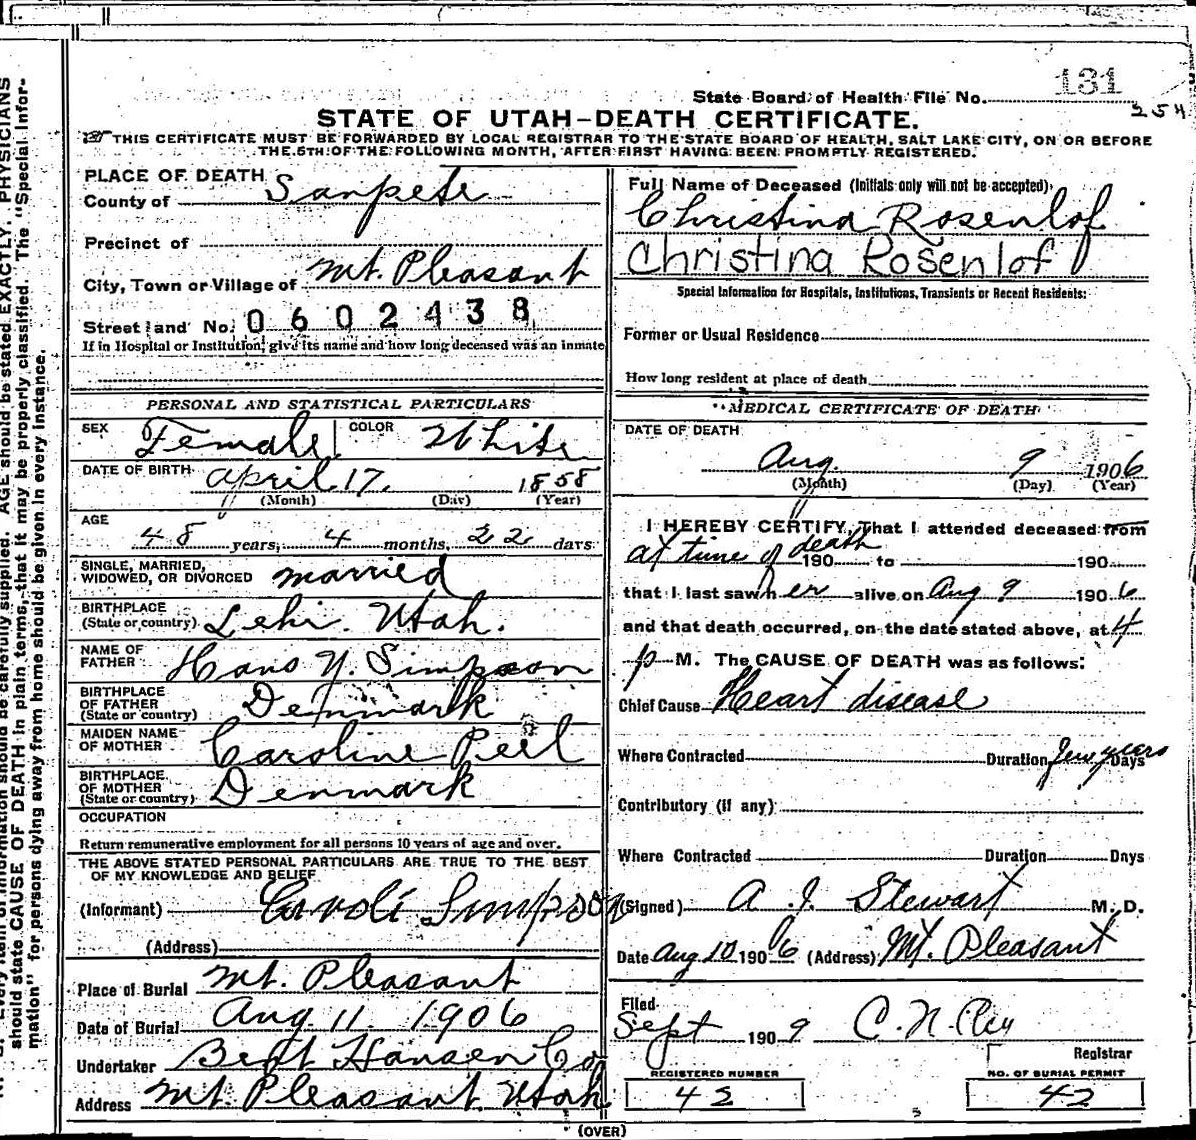 131
State Board of Health File No.
254
STATE OF UTAH–DEATH CERTIFICATE.
THIS CERTIFICATE MUST BE FORWARDED BY LOCAL REGISTRAR TO THE STATE BOARD OF HEALTH, SALT LAKE CITY, ON OR BEFORE
THE 5TH OF THE FOLLOWING MONTH, AFTER FIRST HAVING BEEN PROMPTLY REGISTERED.
PLACE OF DEATH
County of Sanpete
Precinct of
City, Town or Village of Mt. Pleasant
Street and No. 0602438
If in Hospital or Institution, give its name and how long deceased was an inmate
PERSONAL AND STATISTICAL PARTICULARS
SEX Female COLOR White
DATE OF BIRTH April 17, 1858
(Month) (Day) (Year)
AGE
48 years, 4 months, 22 days
SINGLE, MARRIED,
WIDOWED, OR DIVORCED married
BIRTHPLACE
(State or country) Lehi. Utah.
NAME OF
FATHER Hans Y. Simpson
BIRTHPLACE
OF FATHER
(State or country) Denmark
MAIDEN NAME
OF MOTHER Caroline Peel
BIRTHPLACE
OF MOTHER
(State or country) Denmark
OCCUPATION
Return remunerative employment for all persons 10 years of age and over.
THE ABOVE STATED PERSONAL PARTICULARS ARE TRUE TO THE BEST
OF MY KNOWLEDGE AND BELIEF
(Informant) Simpson
(Address)
Place of Burial Mt. Pleasant
Date of Burial Aug. 11. 1906
Undertaker Bent Hansen Co
Address Mt. Pleasant. Utah
Full Name of Deceased (Initials only will not be accepted)
Christina Rosenlof
Christina Rosenlof
Special Information for Hospitals, Institutions, Transients or Recent Residents:
Former or Usual Residence
How long resident at place of death
MEDICAL CERTIFICATE OF DEATH
DATE OF DEATH
Aug. 9 1906
(Month) (Day) (Year)
I HEREBY CERTIFY, That I attended deceased from
at time of death 190 to 190
that I last saw her alive on Aug 9 1906
and that death occurred, on the date stated above, at 4
p M. The CAUSE OF DEATH was as follows:
Chief Cause Heart disease
Where Contracted Duration few years Days
Contributory (if any)
Where Contracted Duration Days
(Signed) A J. Stewart M. D.
Date Aug 10 1906 (Address) Mt. Pleasant
Filed
Sept 1909 C. N.
Registrar
REGISTERED NUMBER NO. OF BURIAL PERMIT
42 42
(OVER)
should state CAUSE OF DEATH in plain terms, that it may be properly classified. The "Special Infor-
mation" for persons dying away from home should be given in every instance.